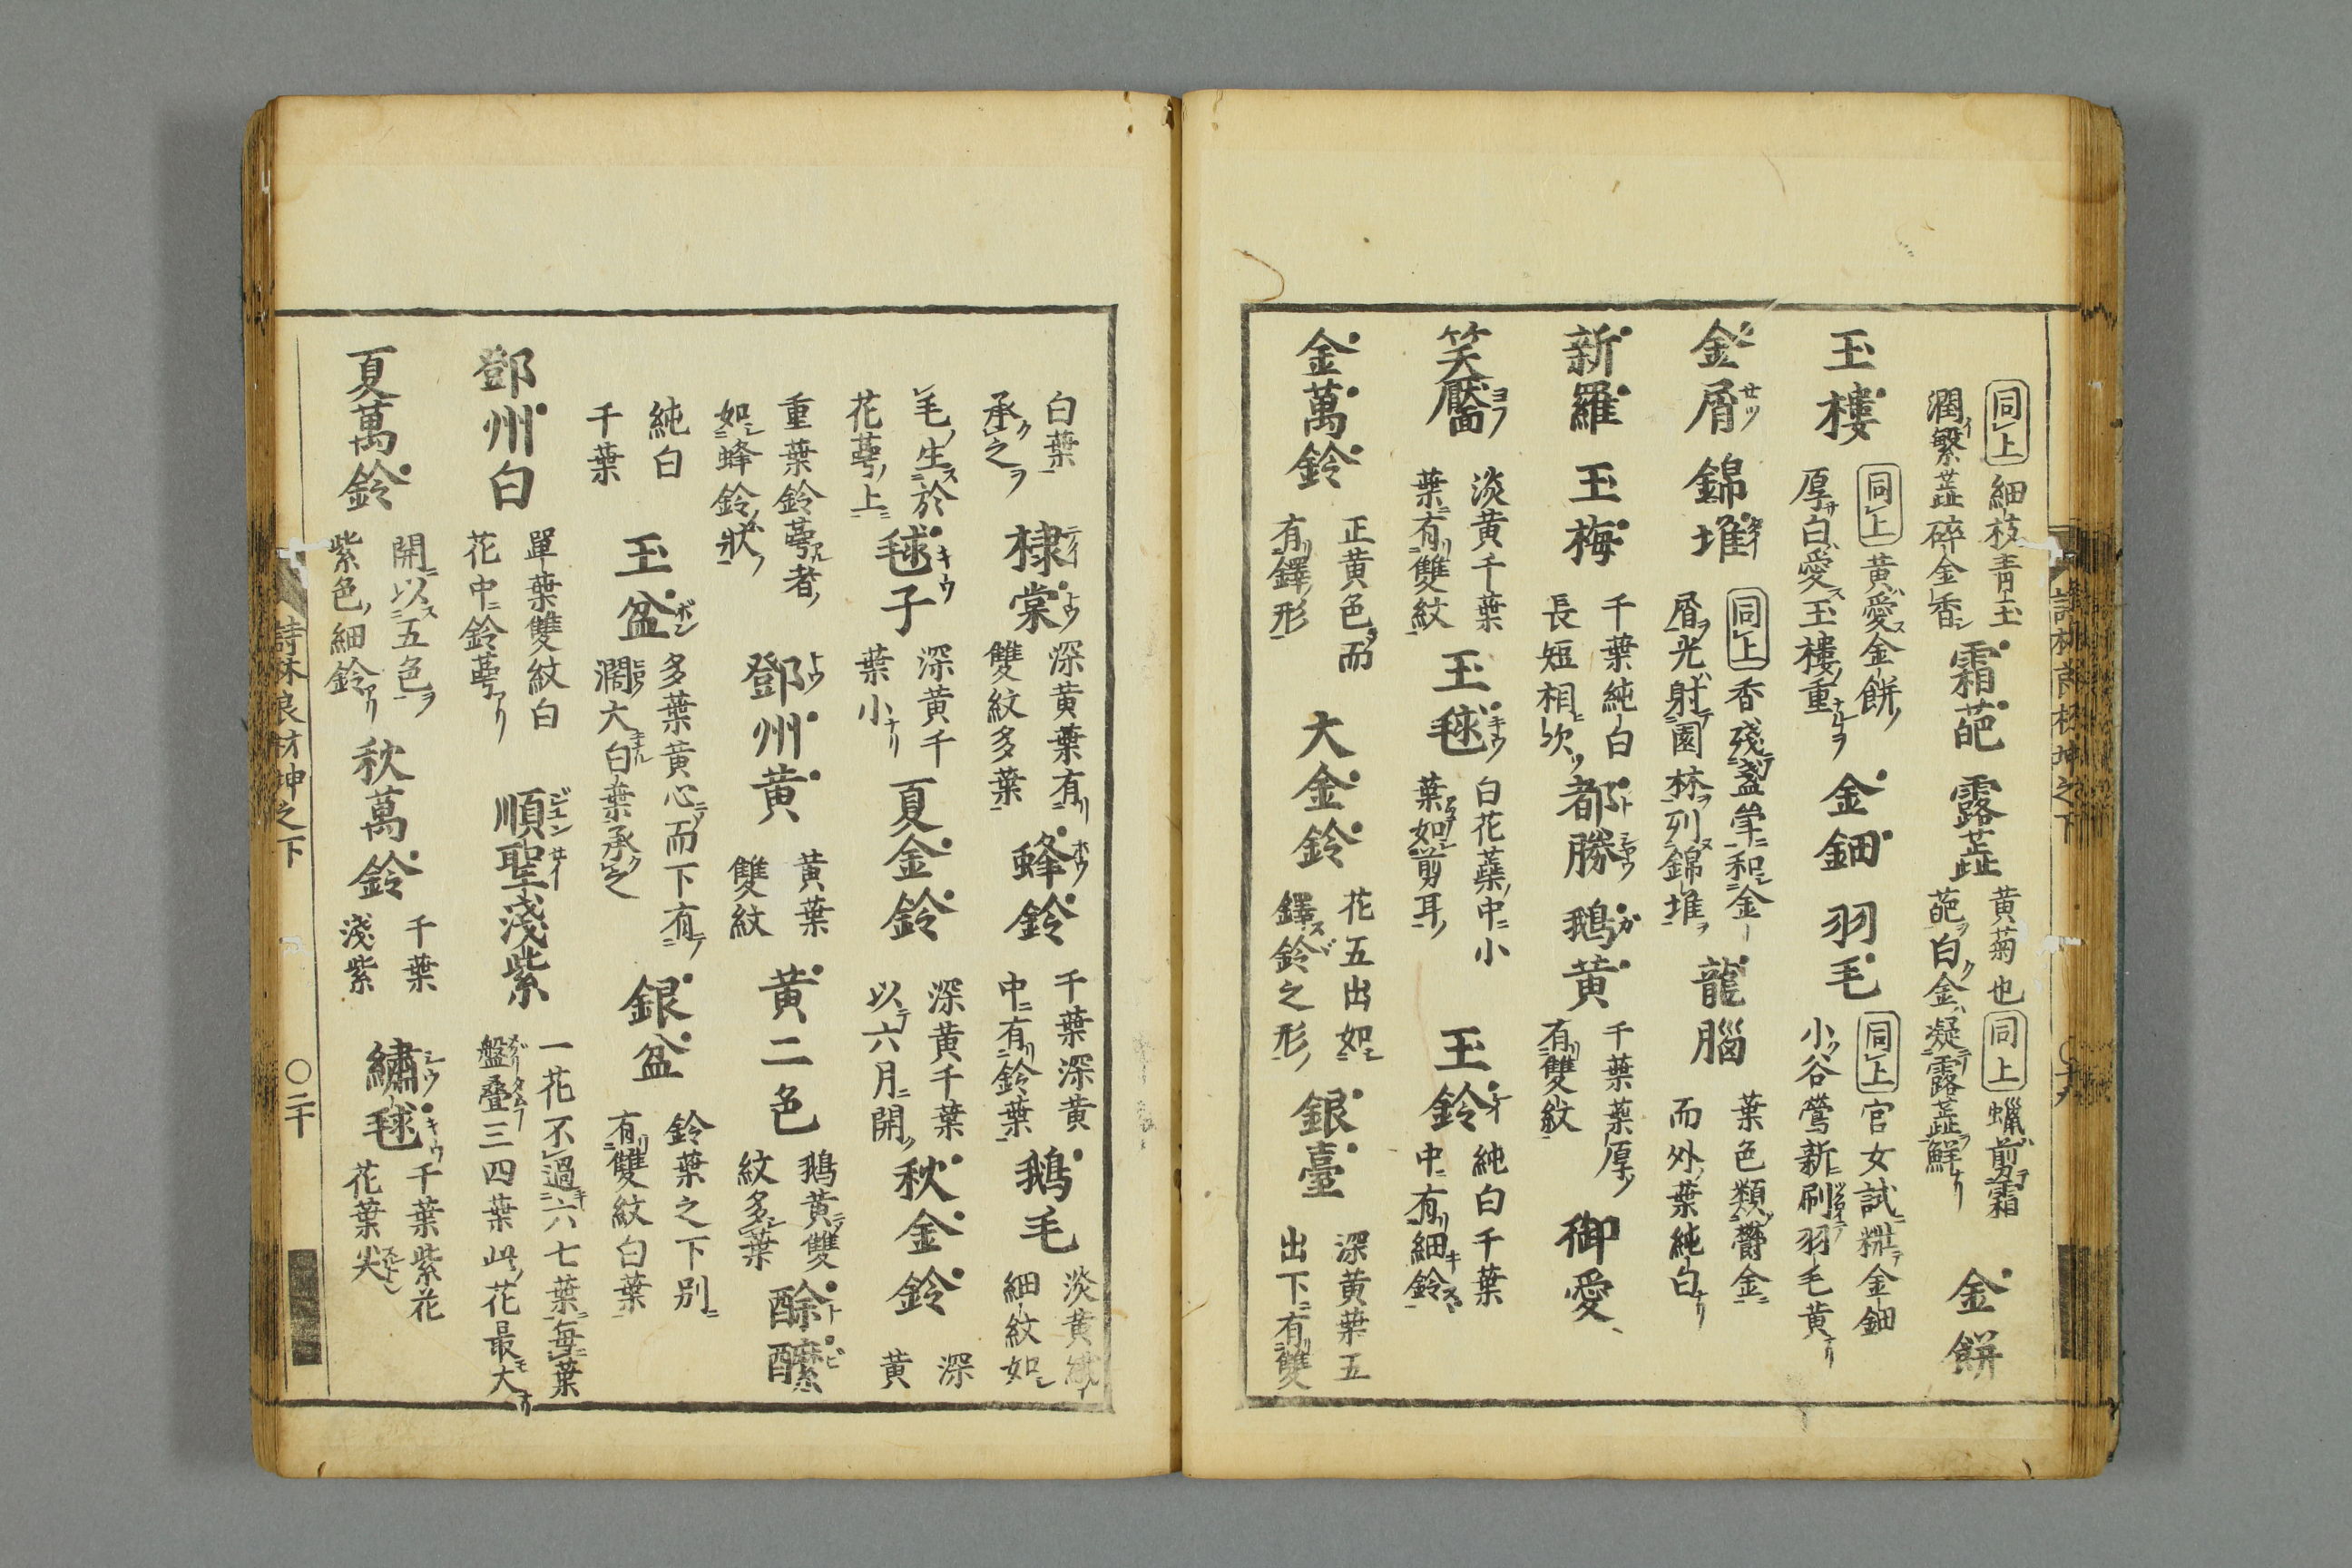 同上 細枝青玉
潤繁蕋碎金香
霜葩 露蕋
黄菊也 同上 蠟剪霜
葩白金凝露蕋鮮
金餅
玉樓
同上 黄愛金餅
厚白愛玉樓重
金鈿 羽毛
同上 官女試粧金鈿
小谷鶯新刷羽毛黄
金屑 錦堆
同上 香殘盞和金
屑光射園林列錦堆
龍腦
葉色類欝金
而外葉純白
新羅 玉梅
千葉純白
長短相次
都勝 鵝黄
千葉葉厚
有雙紋
御愛
笑靨
淡黄千葉
葉有雙紋
玉毬
白花蘂中小
葉如剪耳
玉鈴
純白千葉
中有細鈴
金萬鈴
正黄色而
有鐸形
大金鈴
花五出如
鐸鈴之形
銀臺
深黄葉五
出下有雙
白葉
承之
棣棠
深黄葉有
雙紋多葉
蜂鈴
千葉深黄
中有鈴葉
鵝毛
淡黄
細紋如
毛生於
花萼上
毬子
深黄千
葉小
夏金鈴
深黄千葉
以六月開
秋金鈴
深
黄
重葉鈴萼者
如蜂鈴狀
鄧州黄
黄葉
雙紋
黄二色
鵝黄雙
紋多葉
酴醿
純白
千葉
玉盆
多葉黄心而下有
濶大白葉承之
銀盆
鈴葉之下別
有雙紋白葉
鄧州白
單葉雙紋白
花中鈴萼
順聖淺紫
一花不過六七葉每葉
盤疊三四葉此花最大
夏萬鈴
開以五色
紫色細鈴
秋萬鈴
千葉
淺紫
繡毬
千葉紫花
花葉尖
詩林良材坤之下 〇二十